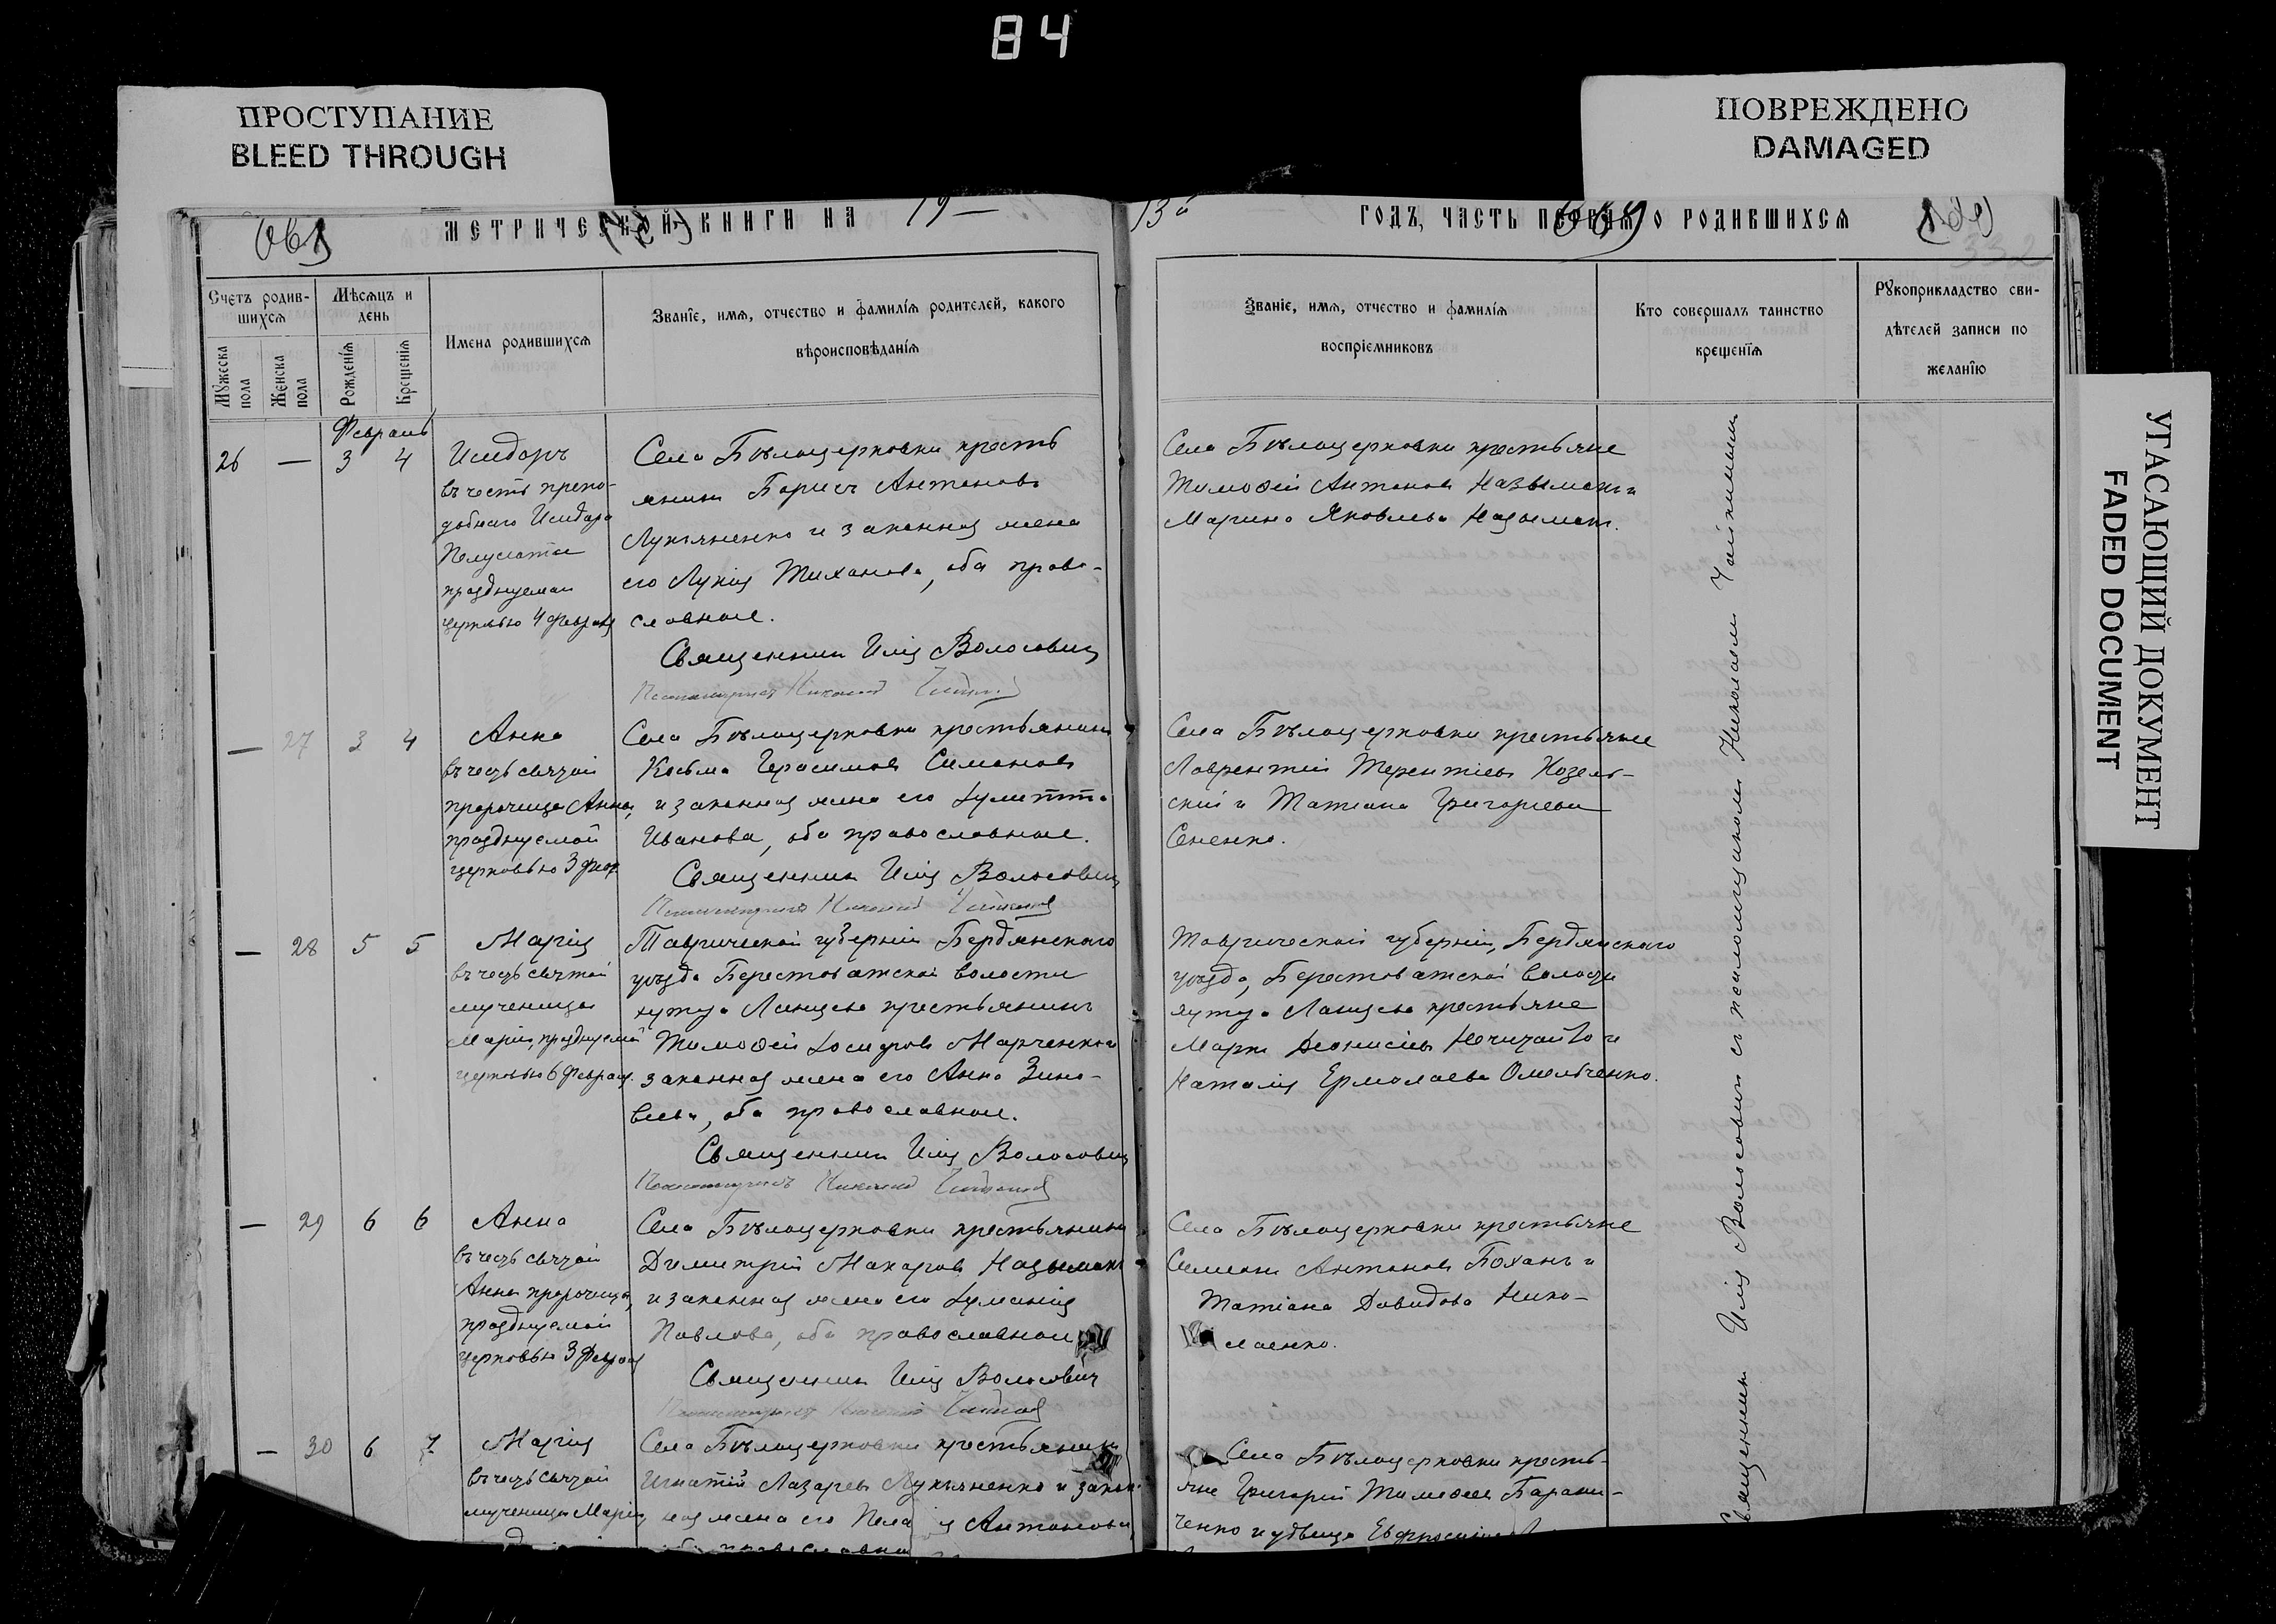 84
ПРОСТУПАНИЕ
BLEED THROUGH
ПОВРЕЖДЕНО
DAMAGED
УГАСАЮЩИЙ ДОКУМЕНТ
FADED DOCUMENT
МЕТРИЧЕСКОЙ КНИГИ НА 19—
13й ГОДЪ, ЧАСТЬ ПЕРВАЯ О РОДИВШИХСЯ
332
Счетъ родив-
шихся
Мужеска пола
Женска пола
Мѣсяцъ и
день
Рожденія
Крещенія
Имена родившихся
Званіе, имя, отчество и фамилія родителей, какого
вѣроисповѣданія
Званіе, имя, отчество и фамилія
воспріемниковъ
Кто совершалъ таинство
крещенія
Рукоприкладство сви-
дѣтелей записи по
желанію
Февраль
26 — 3 4
Исидоръ
въ честь препо-
добнаго Исидора
празднуемаго
церковью 4 Февраля
Села Бѣлоцерковки кресть
янинъ Борисъ Антоновъ
Лукьяненко и законная жена
его Лукія Тиханова, оба право-
славные.
Священникъ Илія Волосовичъ
Псаломщикъ Николай
Села Бѣлоцерковки крестьяне
Тимоѳей Антоновъ Назымокъ и
Марина Яковлева Назымокъ.
— 27 3 4
Анна
въ честь святой
пророчицы Анны,
празднуемой
церковью 3 Февр
Села Бѣлоцерковки крестьянинъ
Косьма Герасимовъ Симоновъ
и законная жена его Іулитта
Иванова, оба православные.
Священникъ Илія Волосовичъ
Псаломщикъ Николай
Села Бѣлоцерковки крестьяне
Лаврентій Терентіевъ Козель-
скій и Татіана Григоріева
Сененко.
— 28 5 5
Марія
въ честь святой
мученицы
Маріи, празднуемой
церковью 6 Февраля.
Таврической губерніи Бердянскаго
уѣзда Берестоватской волости
хутора крестьянинъ
Тимоѳей Марченко и
законная жена его Анна Зино-
віева, оба православные.
Священникъ Илія Волосовичъ
Псаломщикъ Николай
Таврической губерніи, Бердянскаго
уѣзда, Берестоватской волости
хутора крестьяне
Маркъ Діонисіевъ Нечитайло и
Наталія Ермолаева Омельченко.
— 29 6 6
Анна
въ честь святой
Анны пророчицы,
празднуемой
церковью 3 Февраля
Села Бѣлоцерковки крестьянинъ
Димитрій Макаровъ Назымокъ
и законная жена его Іуліанія
Павлова, оба православные
Священникъ Илія Волосовичъ
Псаломщикъ Николай
Села Бѣлоцерковки крестьяне
Симеонъ Антоновъ Боханъ и
Татіана Давидова Нико-
лаенко.
— 30 6 7
Марія
въ честь святой
мученицы Маріи
Села Бѣлоцерковки крестьянинъ
Игнатій Лазаревъ Лукьяненко и закон
ная жена его Пелагія Антонова,
оба православные
Села Бѣлоцерковки кресть-
яне Григорій Тимоѳеевъ Барани-
ченко и вдовица Евфросинія
Священникъ Илія Волосовичъ съ псаломщикомъ Николаемъ